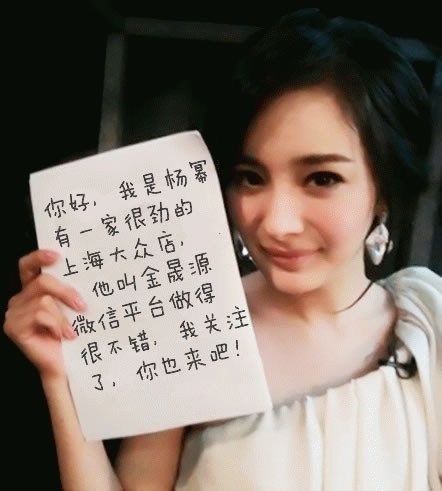 你好，我是杨幂
有一家很劲的
上海大众店，
他叫金晟源
微信平台做得
很不错，我关注
了，你也来吧！